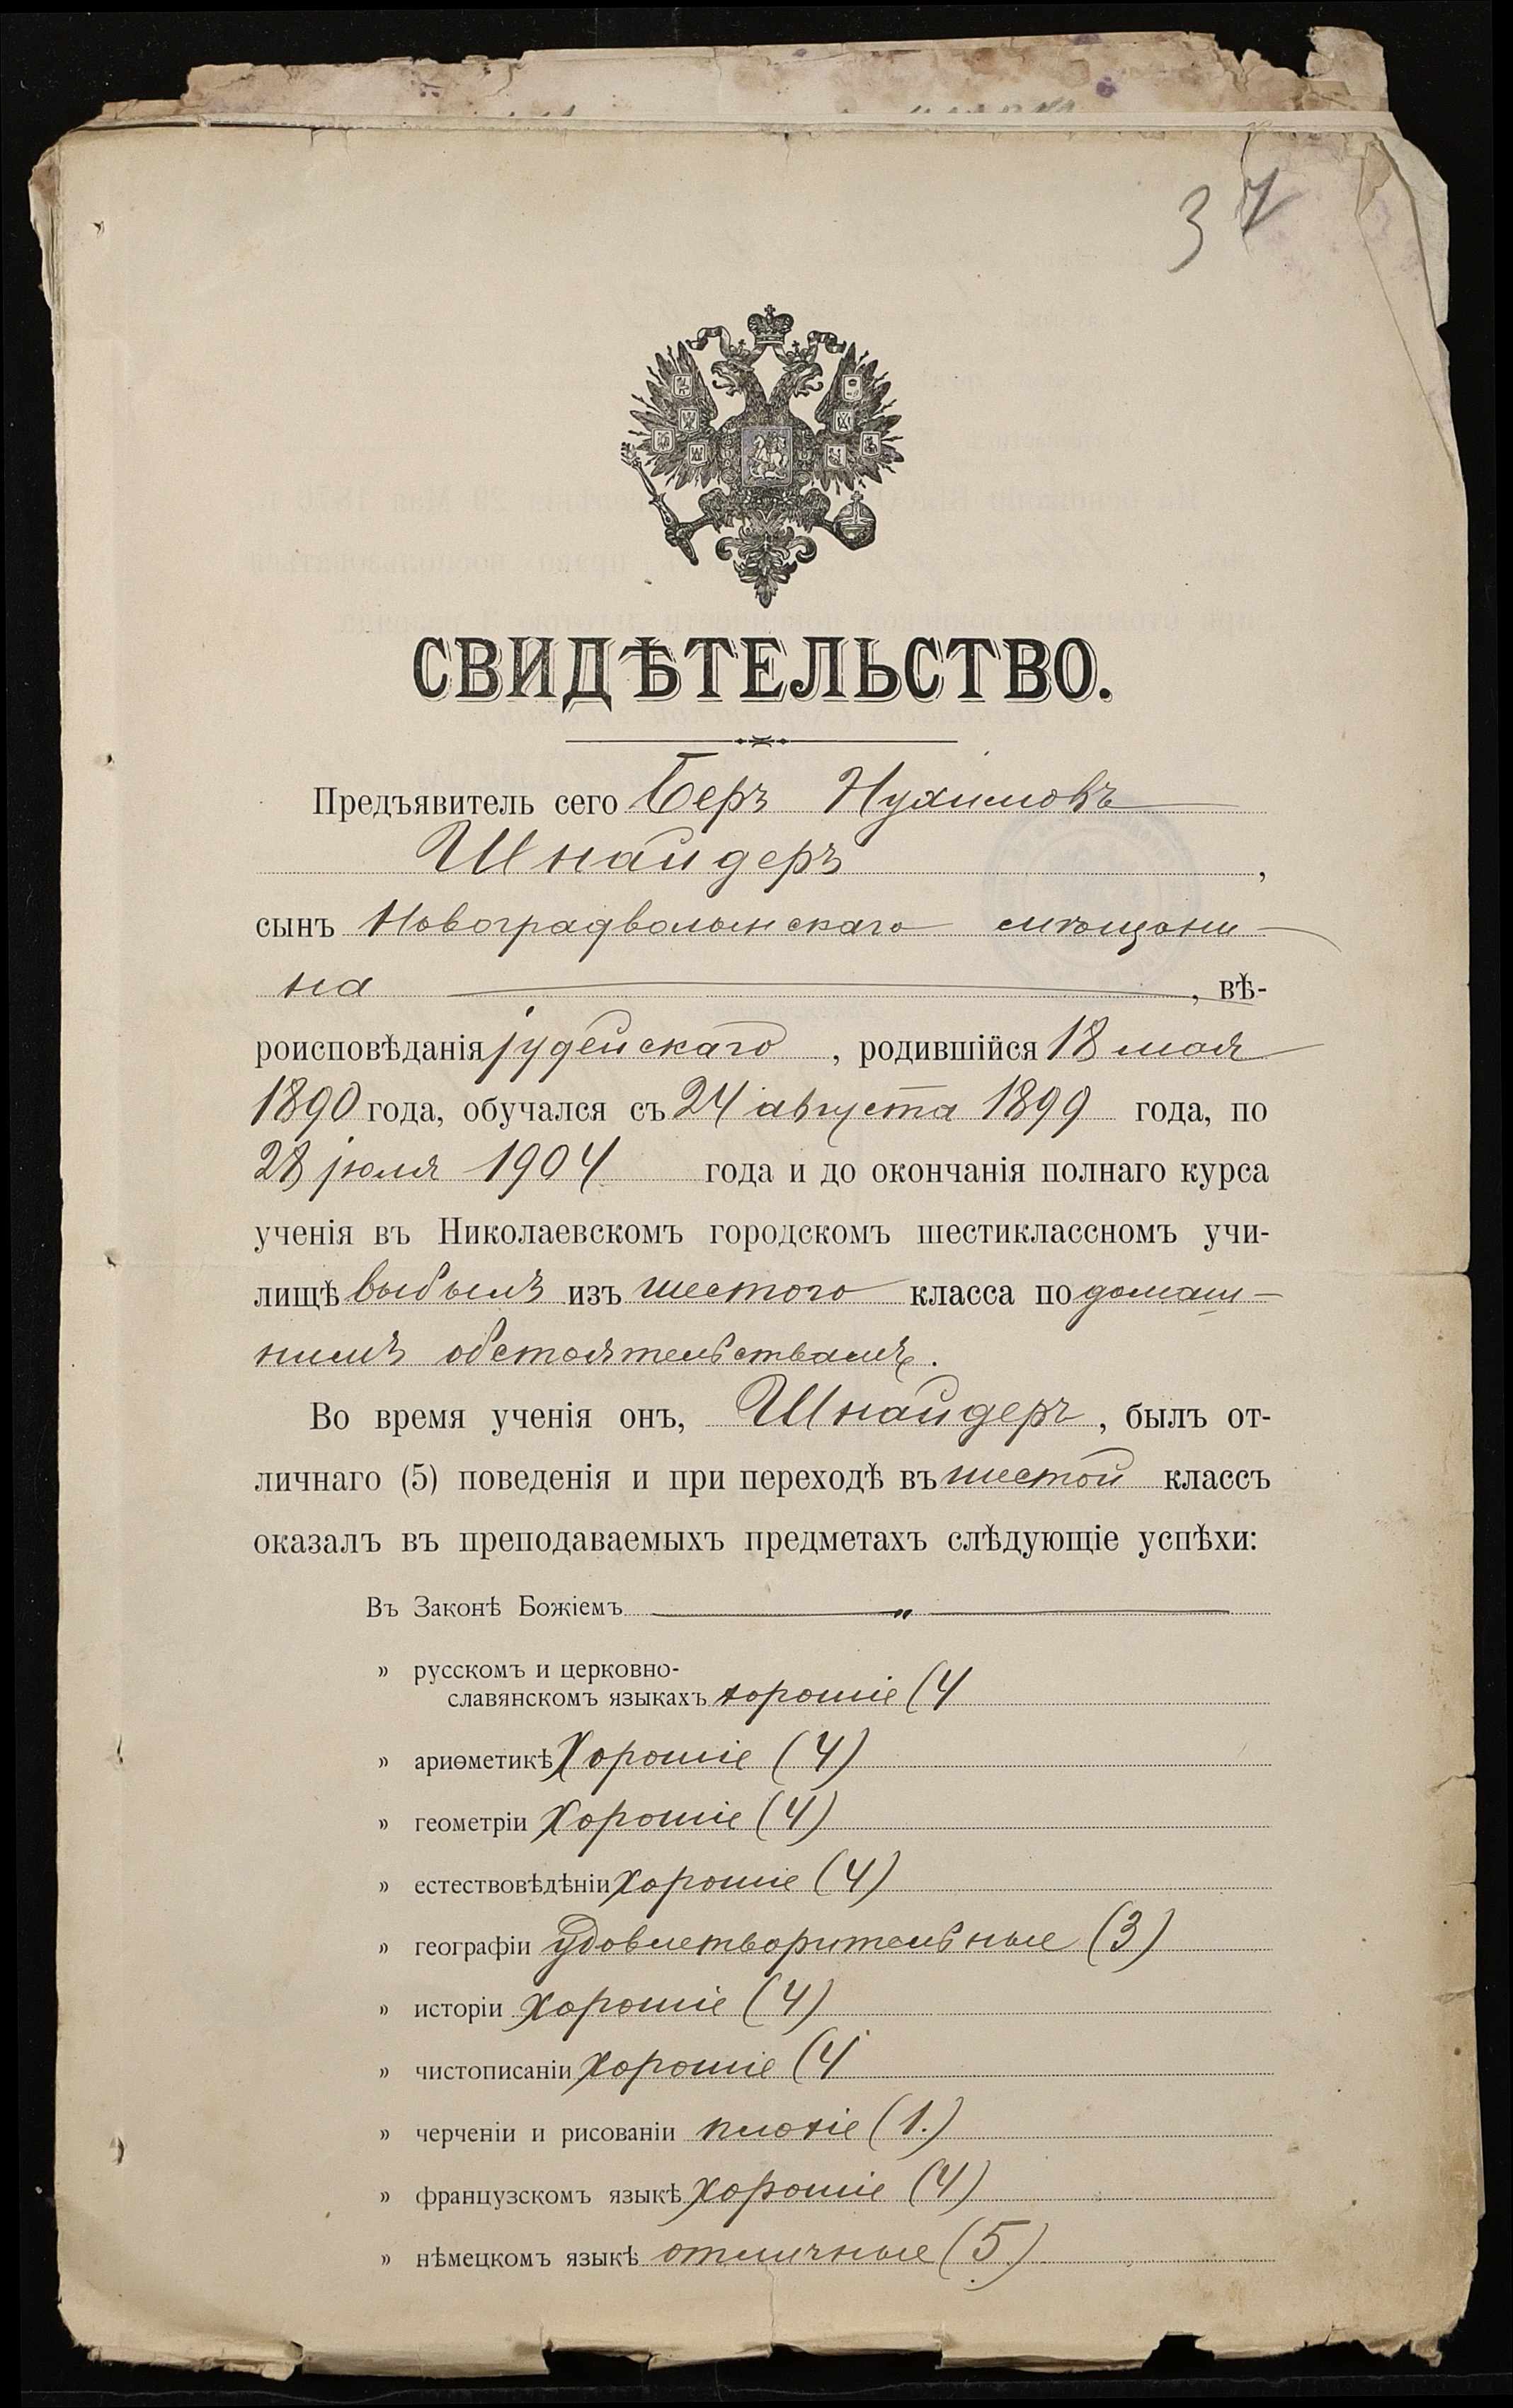 37
СВИДѢТЕЛЬСТВО.
Предъявитель сего Беръ Нухимовъ
Шнайдеръ,
сынъ Новоградволынскаго мѣщани-
на, вѣ-
роисповѣданія іудейскаго, родившійся 18 мая
1890 года, обучался съ 24 августа 1899 года, по
28 іюля 1904 года и до окончанія полнаго курса
ученія въ Николаевскомъ городскомъ шестиклассномъ учи-
лищѣ выбылъ изъ шестого класса по домаш-
нимъ обстоятельствамъ.
Во время ученія онъ, Шнайдеръ, былъ от-
личнаго (5) поведенія и при переходѣ въ шестой классъ
оказалъ въ преподаваемыхъ предметахъ слѣдующіе успѣхи:
Въ Законѣ Божіемъ — „ —
» русскомъ и церковно-
славянскомъ языкахъ хорошіе (4
» ариѳметикѣ хорошіе (4)
» геометріи хорошіе (4)
» естествовѣдѣніи хорошіе (4)
» географіи удовлетворительные (3)
» исторіи хорошіе (4)
» чистописаніи хорошіе (4
» черченіи и рисованіи плохіе (1.)
» французскомъ языкѣ хорошіе (4)
» нѣмецкомъ языкѣ отличные (5)